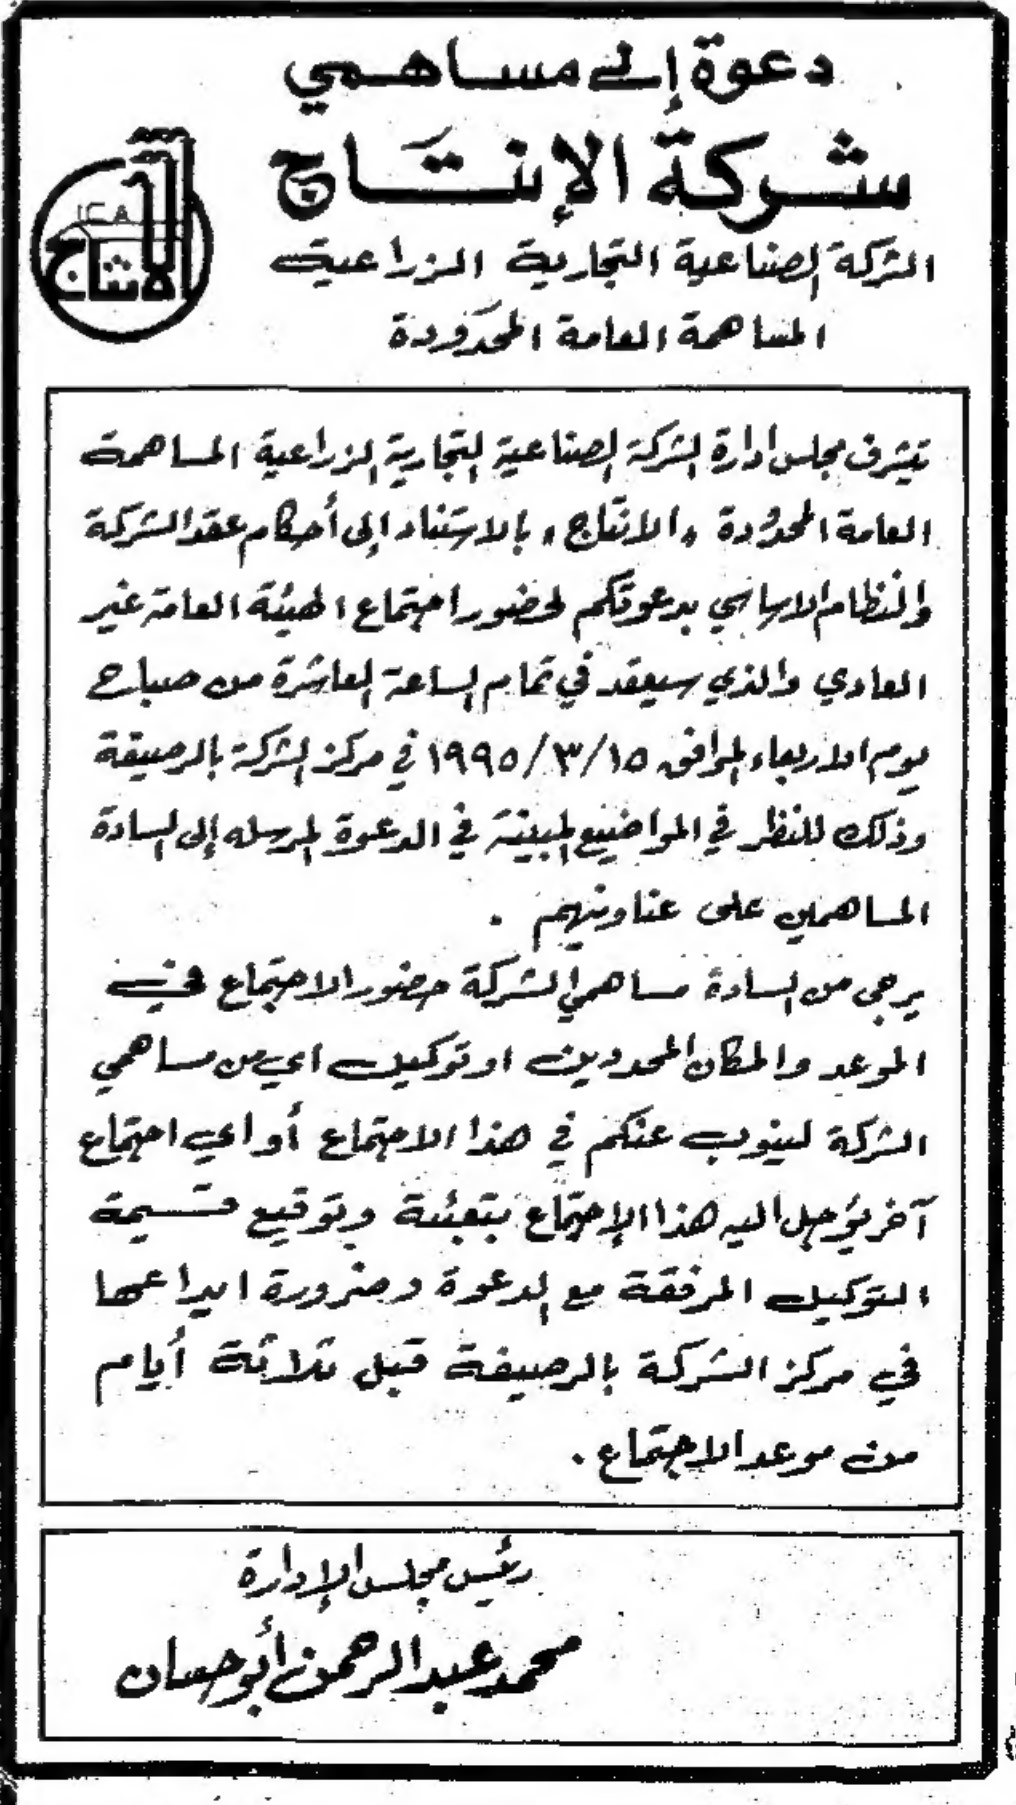 دعوة إلى مساهمي
شركة الإنتاج
ICA
الانتاج
الشركة الصناعية التجارية الزراعية
المساهمة العامة المحدودة
يتشرف مجلس ادارة الشركة الصناعية التجارية الزراعية المساهمة
العامة المحدودة «الانتاج» بالاستناد إلى أحكام عقد الشركة
والنظام الاساسي بدعوتكم لحضور اجتماع الهيئة العامة غير
العادي والذي سيعقد في تمام الساعة العاشرة من صباح
يوم الاربعاء الموافق ١٩٩٥/٣/١٥ في مركز الشركة بالرصيفة
وذلك للنظر في المواضيع المبينة في الدعوة المرسله إلى السادة
المساهمين على عناوينهم .
يرجى من السادة مساهمي الشركة حضور الاجتماع في
الموعد والمكان المحددين او توكيل اي من مساهمي
الشركة لينوب عنكم في هذا الاجتماع أو اي اجتماع
آخر يؤجل اليه هذا الإجتماع بتعبئة وتوقيع قسيمة
التوكيل المرفقة مع الدعوة وضرورة ايداعها
في مركز الشركة بالرصيفة قبل ثلاثة أيام
من موعد الاجتماع .
رئيس مجلس الإدارة
محمد عبد الرحمن أبو حسان